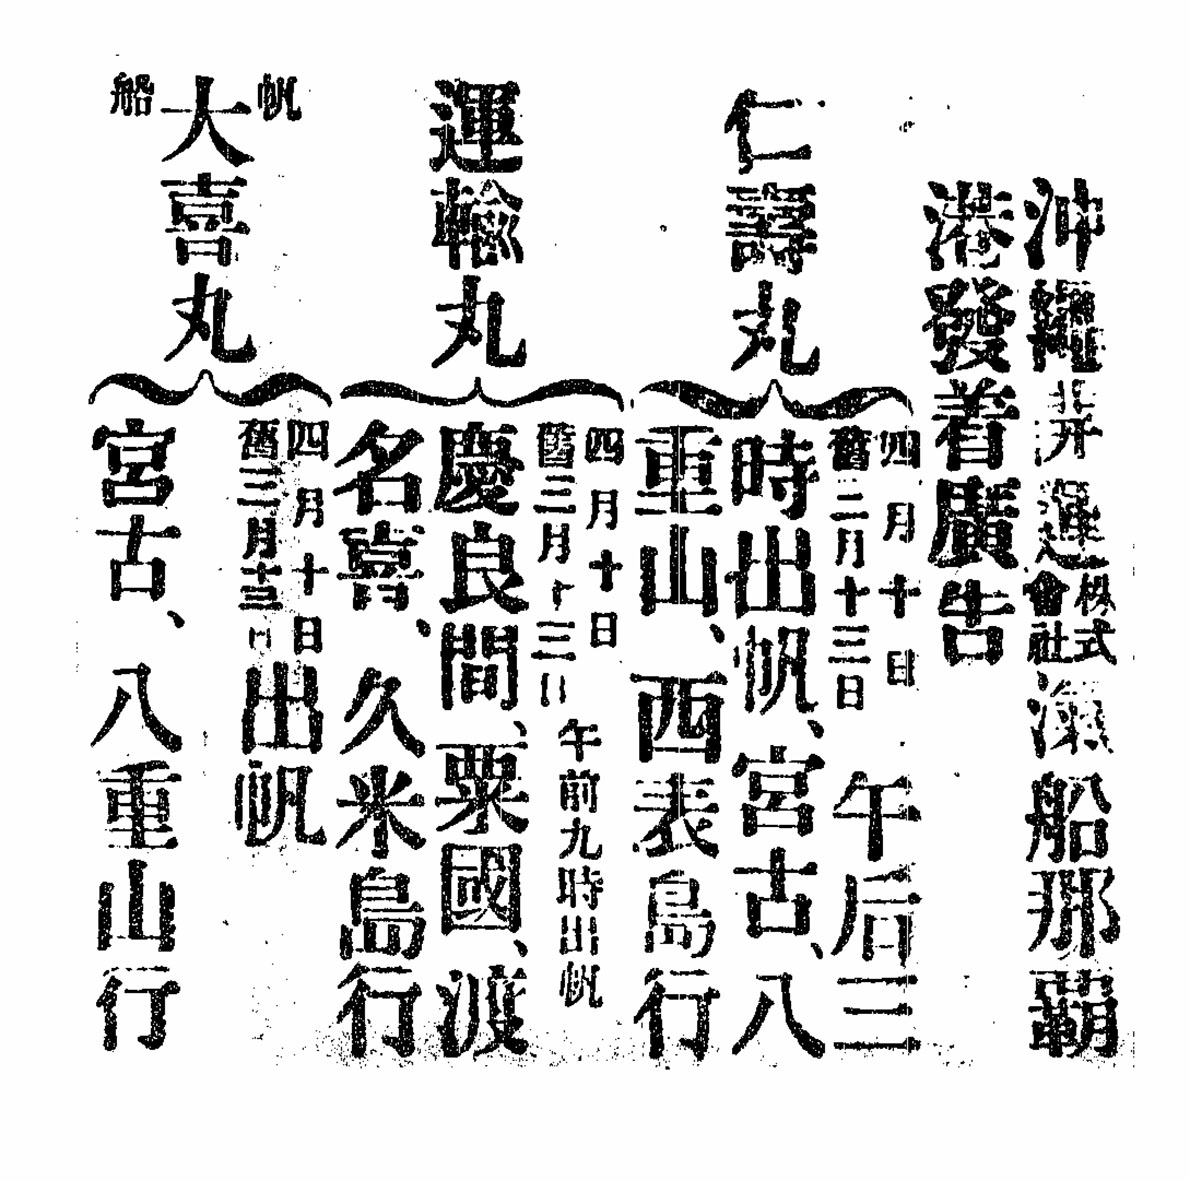 沖繩運株式會社滊船那覇
港發着廣告
仁壽丸
四月十日
舊二月十三日
午后三
時出帆、宮古、八
重山、西表島行
運輸丸
四月十日
舊三月十三日
午前九時出帆
慶良間、粟國、渡
名喜、久米島行
帆船
大喜丸
四月十日
舊三月十三日
出帆
宮古、八重山行